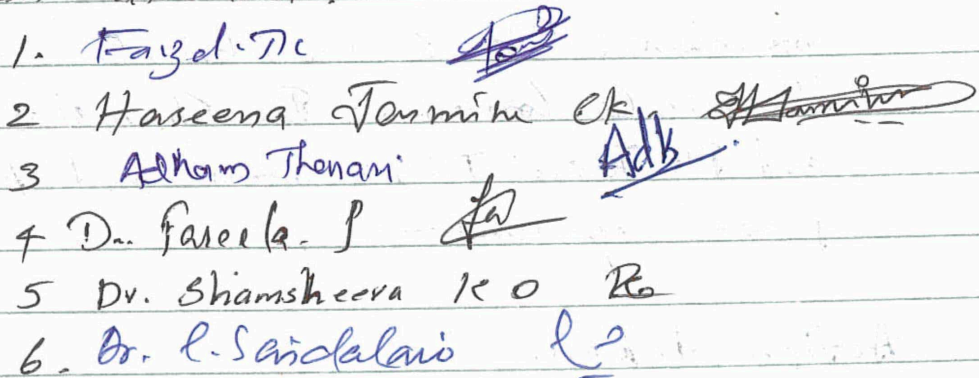 1. Faizal. TC
2 Haseena Jasmine CK
3 Adham Thanari Adh
4 Dr. Fareela. P
5 Dr. Shamsheera K O
6. Dr. C. Saidalavi